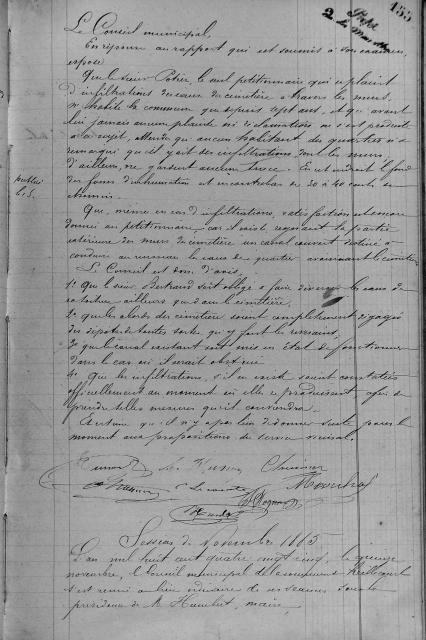 155
Le Conseil municipal,
En réponse au rapport qui est soumis à son examen,
expose
Que le sieur Potier, le seul pétitionnaire qui se plaint
d'infiltrations des eaux du cimetière à travers les murs,
n'habite la commune que depuis sept ans, et qui avant
lui jamais aucune plainte ni réclamations ne s'est produite
à ce sujet, attendu qu'aucun habitant du quartier n'a
remarqué qu'il y ait des infiltrations, dont les murs,
d'ailleurs, ne gardent aucune trace. En cet endroit le fond
des fosses d'inhumation est en contrebas de 30 à 40 cent. du
chemin.
Que, même en cas d'infiltrations, satisfaction est encore
donnée au pétitionnaire car il existe regardant la partie
extérieure des murs du cimetière un canal couvert destiné à
conduire au ruisseau les eaux du quartier avoisinant le cimetière
Le Conseil est donc d'avis
1° Que le sieur Bertrand soit obligé à faire déverser les eaux de
sa toiture ailleurs que dans le cimetière,
2° que les abords du cimetière soient complètement dégagés
des dépôts de toutes sortes qu'y font les riverains,
3° que le canal existant soit mis en état de fonctionner
dans le cas où il serait obstrué
4° Que les infiltrations, s'il en existe soient constatées
officiellement au moment où elles se produisent afin de
prendre telles mesures qu'il conviendra.
Estime qu'il n'y a pas lieu de donner suite pour le
moment aux propositions du service vicinal.
Session de novembre 1885
L'an mil huit cent quatre vingt cinq, le quinze
novembre, le Conseil municipal de la commune
s'est réuni au lieu ordinaire de ses séances sous la
présidence de M. Humbert, maire,